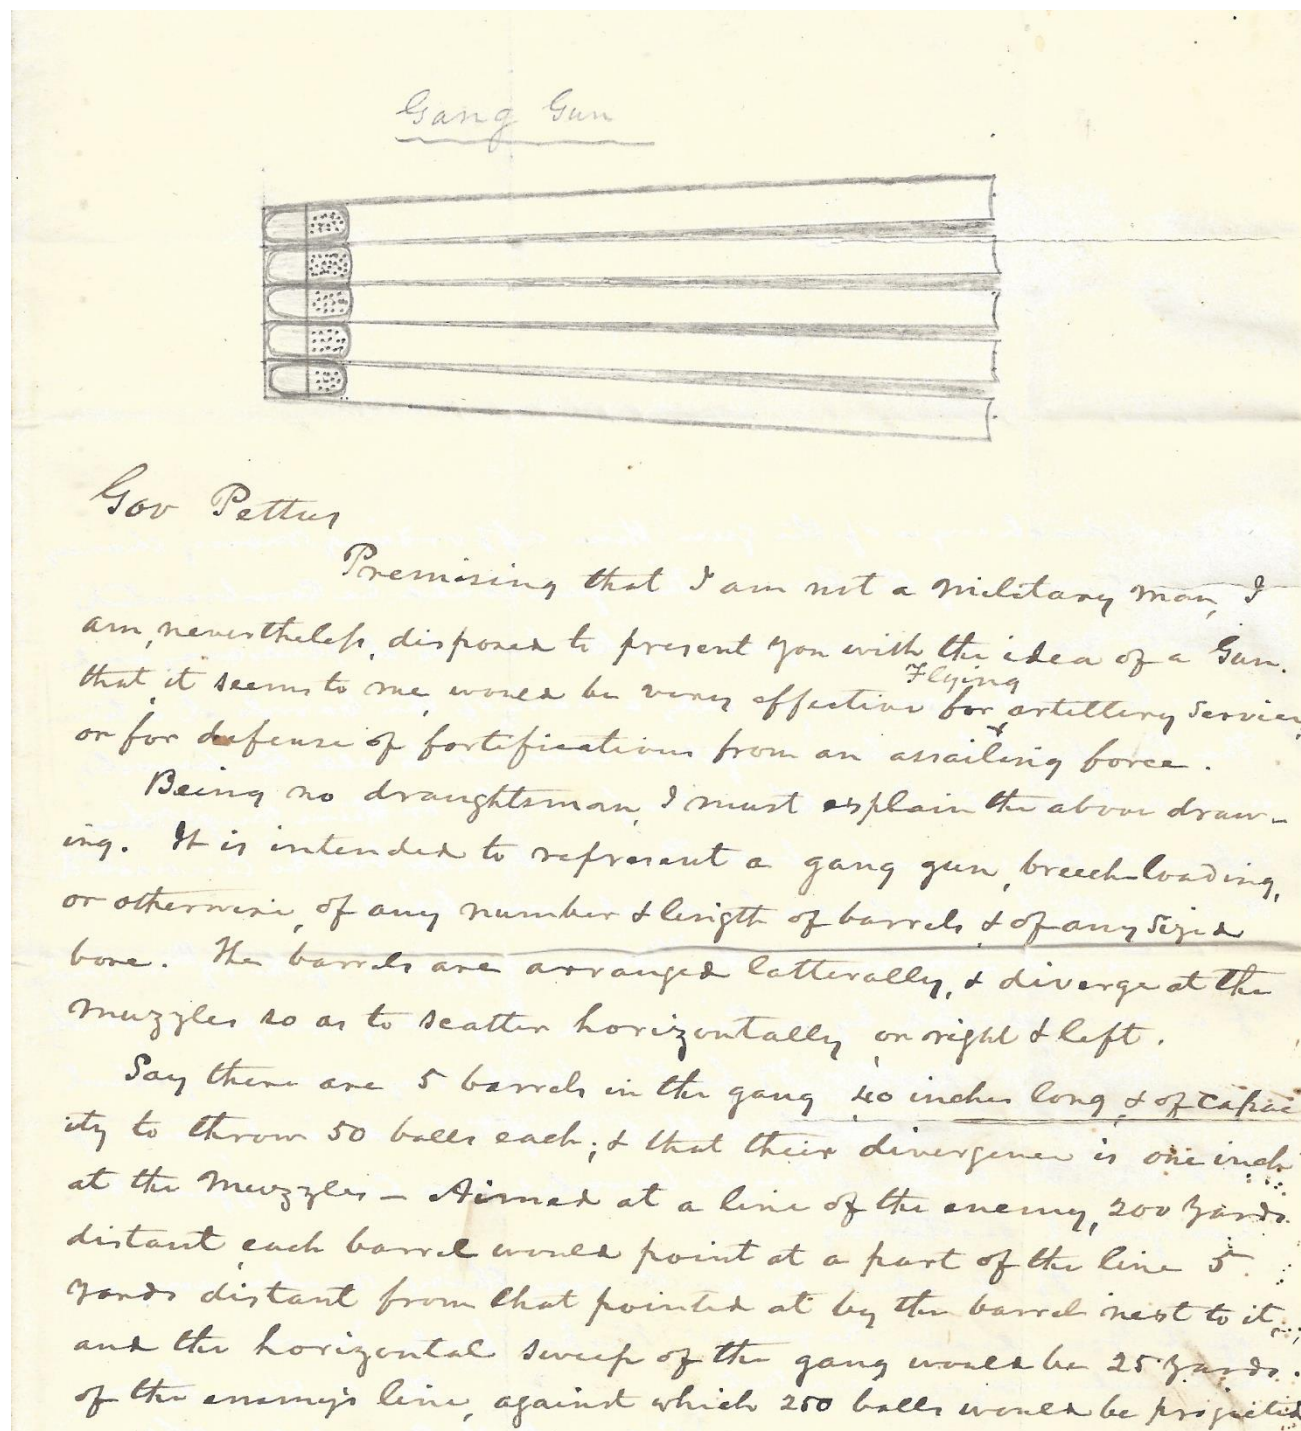 Gang Gun
Gov Pettus
Premising that I am not a military man, I
am, nevertheless, disposed to present you with the idea of a Gun.
that, it seems to me, would be very effective for Flying artillery service,
or for defense of fortifications from an assailing force.
Being no draughtsman, I must explain the above draw-
ing. It is intended to represent a gang gun, breech-loading,
or otherwise, of any number & length of barrels & of any sized
bore. The barrels are arranged latterally, & diverge at the
muzzles so as to scatter horizontally, or right & left.
Say there are 5 barrels in the gang 40 inches long, & of capac
ity to throw 50 balls each; & that their divergence is one inch
at the Muzzles – Aimed at a line of the enemy, 200 yards
distant, each barrel would point at a part of the line 5
yards distant from that pointed at by the barrel next to it,
and the horizontal sweep of the gang would be 25 yards.
of the enemy's line, against which 250 balls would be projected